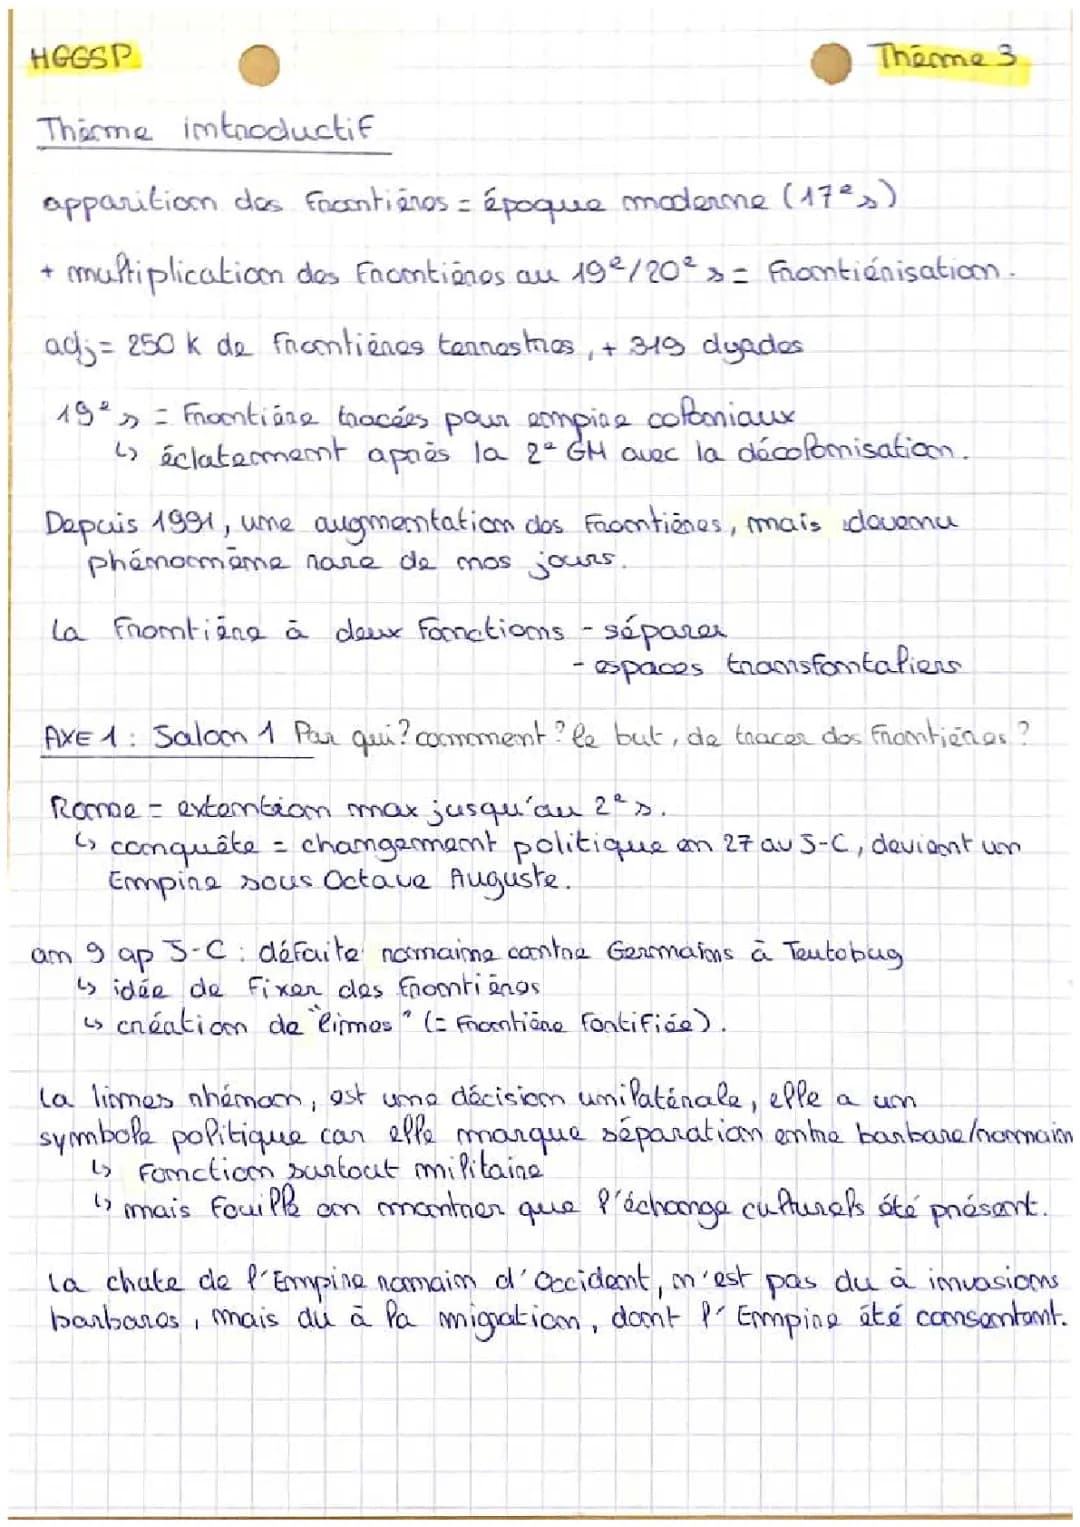 HGGSP
Thème 3
Thème introductif
apparition des frontières = époque moderne (17e s)
+ multiplication des frontières au 19e/20e s = frontiérisation.
adj = 250 k de frontières terrestres, + 319 dyades
19e s = frontière tracées pour empire coloniaux
↳ éclatement après la 2e GM avec la décolonisation.
Depuis 1991, une augmentation des frontières, mais devenu
phénomème rare de nos jours.
La frontière à deux fonctions - séparer
- espaces transfontaliers
AXE 1 : Jalon 1 Par qui? comment? le but, de tracer des frontières ?
Rome = extention max jusqu'au 2e s.
↳ conquête = changement politique en 27 av J-C, devient un
Empire sous Octave Auguste.
an 9 ap J-C : défaite romaine contre Germains à Teutobug
↳ idée de fixer des frontières
↳ création de "limes" (= frontière fortifiée).
La limes rhémon, est une décision unilatérale, elle a un
symbole politique car elle marque séparation entre barbare/romain
↳ fonction surtout militaire
↳ mais fouille on montrer que l'échange culturels été présent.
La chute de l'Empire romain d'Occident, n'est pas du à invasions
barbares, mais du à la migration, dont l'Empire été consentant.